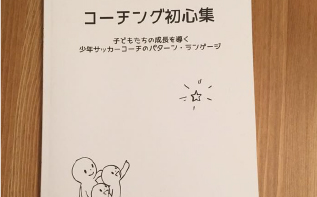 コーチング初心集
子どもたちの成長を導く
少年サッカーコーチのパターン・ランゲージ